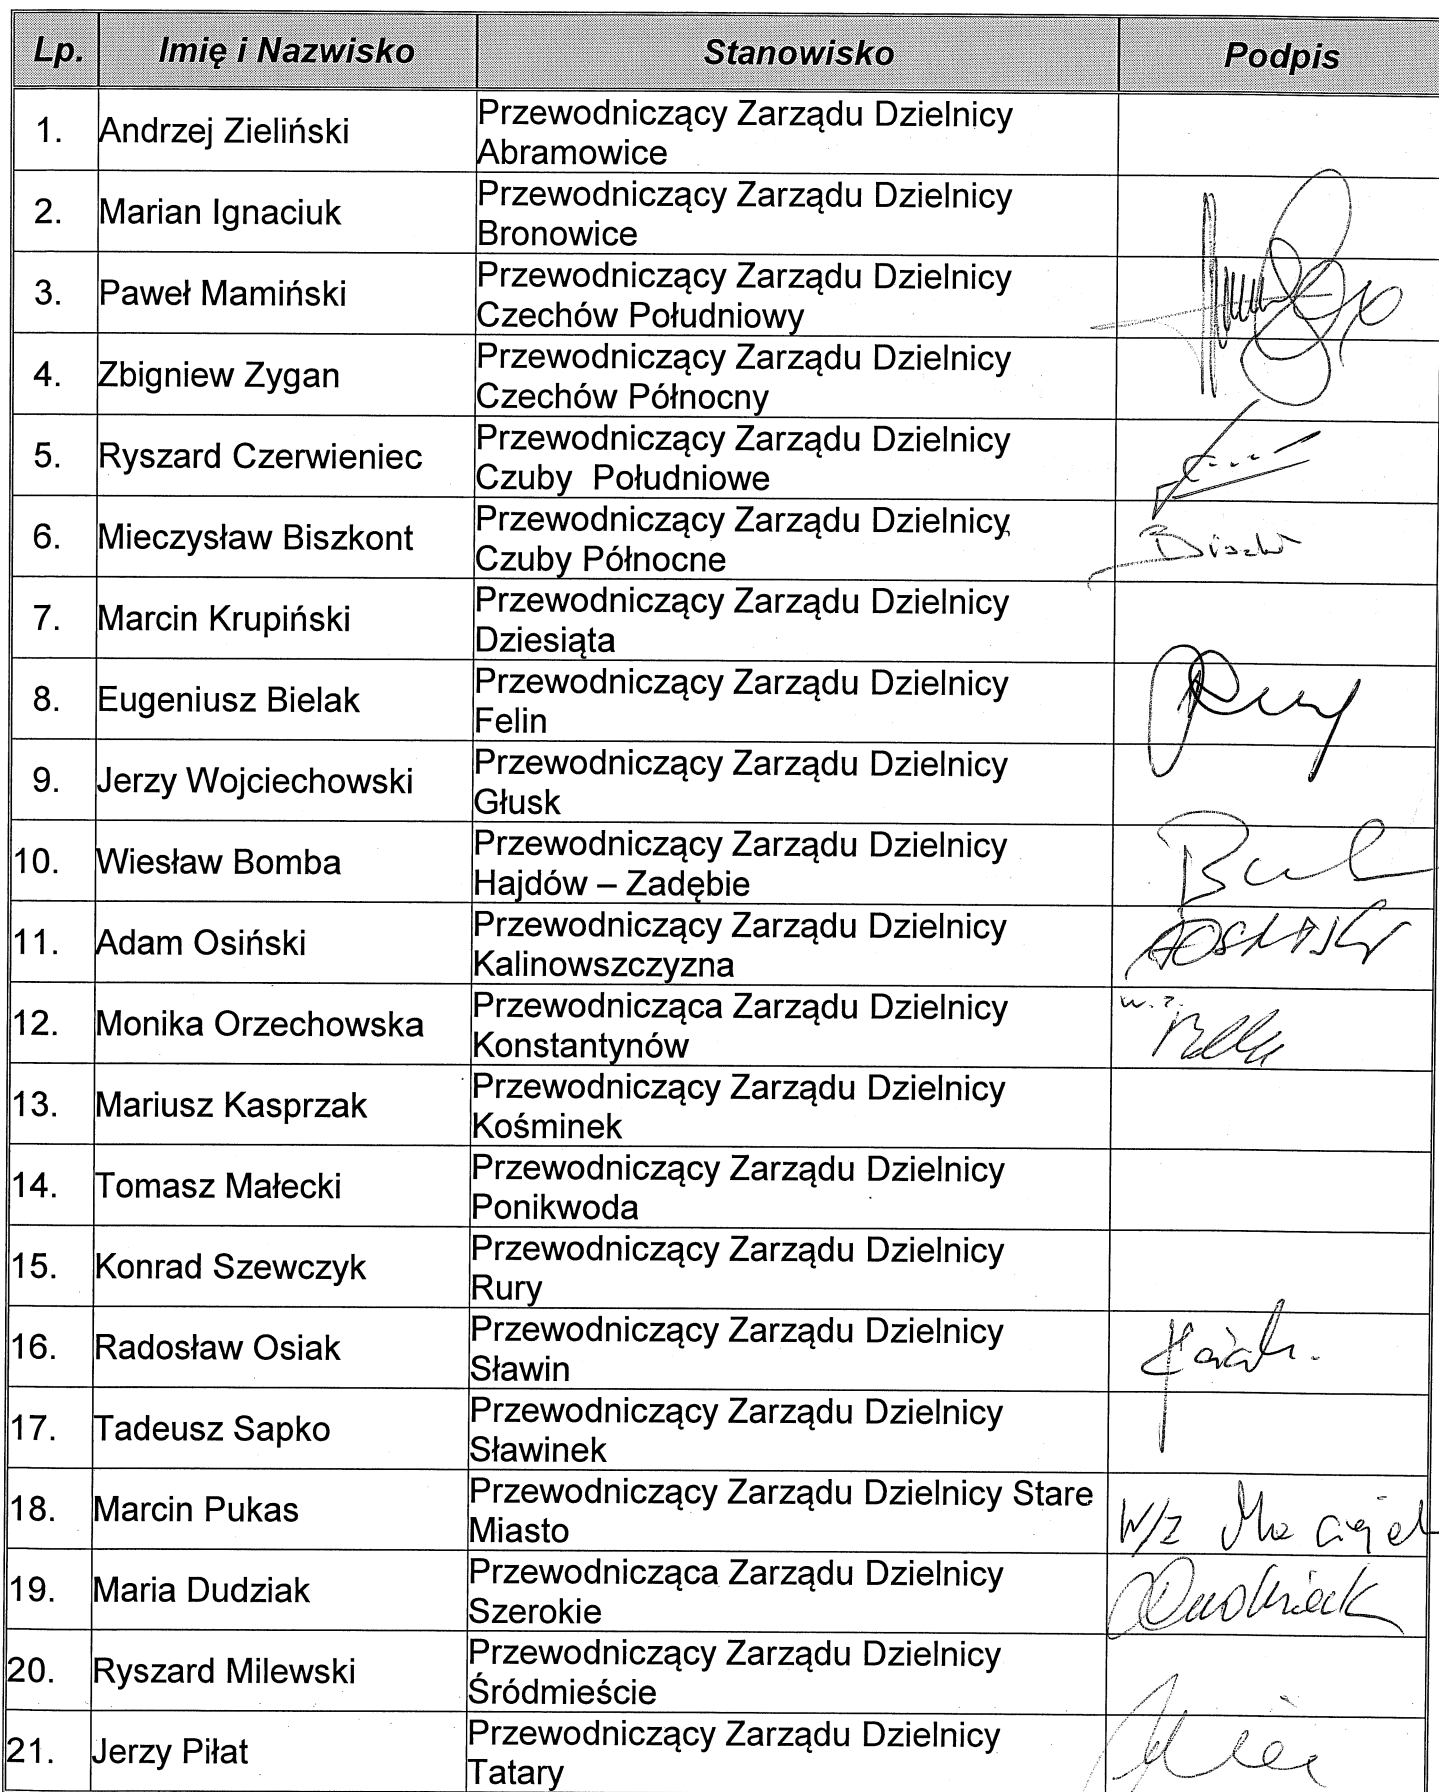 Lp. Imię i Nazwisko Stanowisko Podpis
1. Andrzej Zieliński Przewodniczący Zarządu Dzielnicy
Abramowice
2. Marian Ignaciuk Przewodniczący Zarządu Dzielnicy
Bronowice
3. Paweł Mamiński Przewodniczący Zarządu Dzielnicy
Czechów Południowy
4. Zbigniew Zygan Przewodniczący Zarządu Dzielnicy
Czechów Północny
5. Ryszard Czerwieniec Przewodniczący Zarządu Dzielnicy
Czuby Południowe
6. Mieczysław Biszkont Przewodniczący Zarządu Dzielnicy
Czuby Północne
7. Marcin Krupiński Przewodniczący Zarządu Dzielnicy
Dziesiąta
8. Eugeniusz Bielak Przewodniczący Zarządu Dzielnicy
Felin
9. Jerzy Wojciechowski Przewodniczący Zarządu Dzielnicy
Głusk
10. Wiesław Bomba Przewodniczący Zarządu Dzielnicy
Hajdów – Zadębie
11. Adam Osiński Przewodniczący Zarządu Dzielnicy
Kalinowszczyzna
12. Monika Orzechowska Przewodnicząca Zarządu Dzielnicy w.z.
Konstantynów
13. Mariusz Kasprzak Przewodniczący Zarządu Dzielnicy
Kośminek
14. Tomasz Małecki Przewodniczący Zarządu Dzielnicy
Ponikwoda
15. Konrad Szewczyk Przewodniczący Zarządu Dzielnicy
Rury
16. Radosław Osiak Przewodniczący Zarządu Dzielnicy
Sławin
17. Tadeusz Sapko Przewodniczący Zarządu Dzielnicy
Sławinek
18. Marcin Pukas Przewodniczący Zarządu Dzielnicy Stare W/Z
Miasto
19. Maria Dudziak Przewodnicząca Zarządu Dzielnicy
Szerokie
20. Ryszard Milewski Przewodniczący Zarządu Dzielnicy
Śródmieście
21. Jerzy Piłat Przewodniczący Zarządu Dzielnicy
Tatary